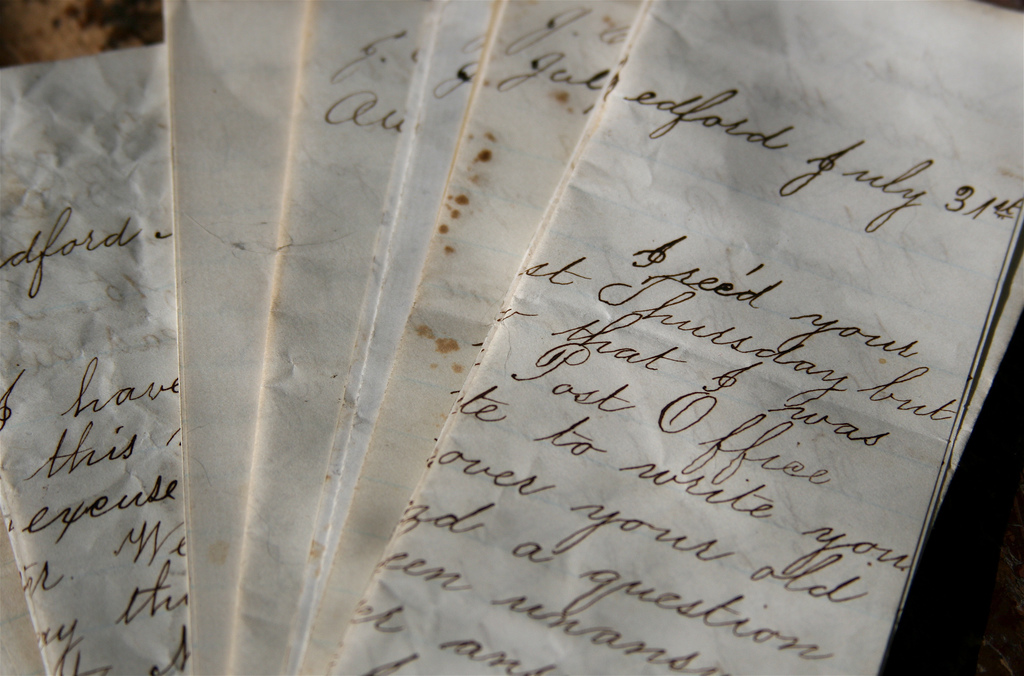 dford.
have
this
excuse
We
ay thi
J.
Au
J.
Jul
edford July 31st
I rec'd your
st Thursday but
that I was
Post Office
te to write you
over your old
nd a question
een unansw
er